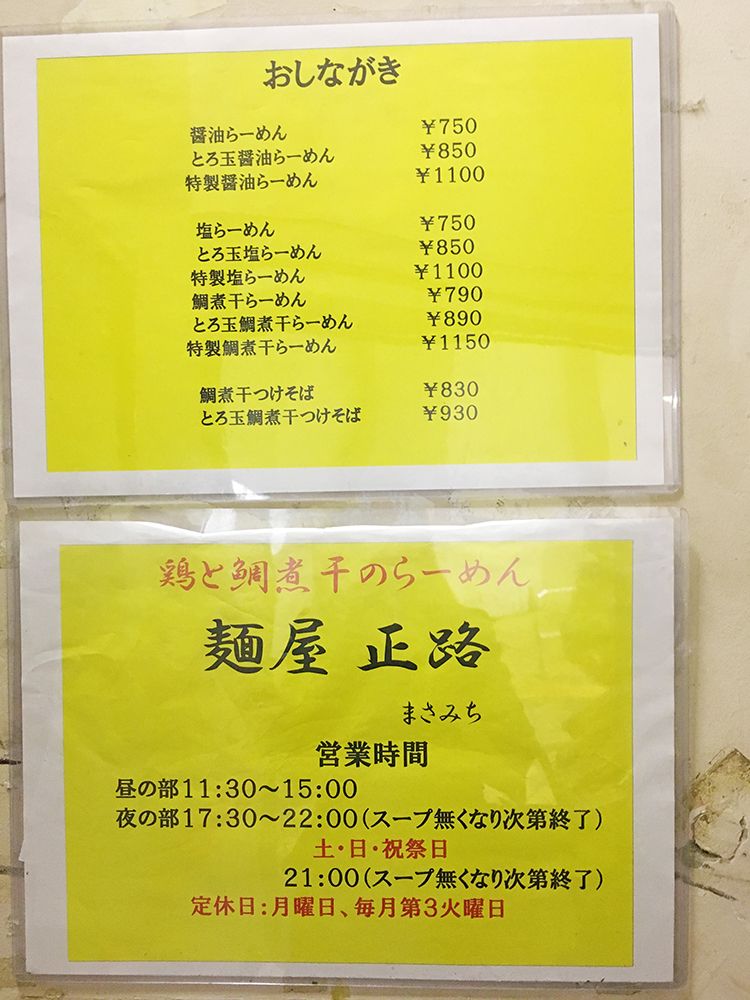 おしながき
醤油らーめん ￥750
とろ玉醤油らーめん ￥850
特製醤油らーめん ￥1100
塩らーめん ￥750
とろ玉塩らーめん ￥850
特製塩らーめん ￥1100
鯛煮干らーめん ￥790
とろ玉鯛煮干らーめん ￥890
特製鯛煮干らーめん ￥1150
鯛煮干つけそば ￥830
とろ玉鯛煮干つけそば ￥930
鶏と鯛煮干のらーめん
麺屋 正路
まさみち
営業時間
昼の部11:30～15:00
夜の部17:30～22:00(スープ無くなり次第終了)
土・日・祝祭日
21:00(スープ無くなり次第終了)
定休日:月曜日、毎月第3火曜日